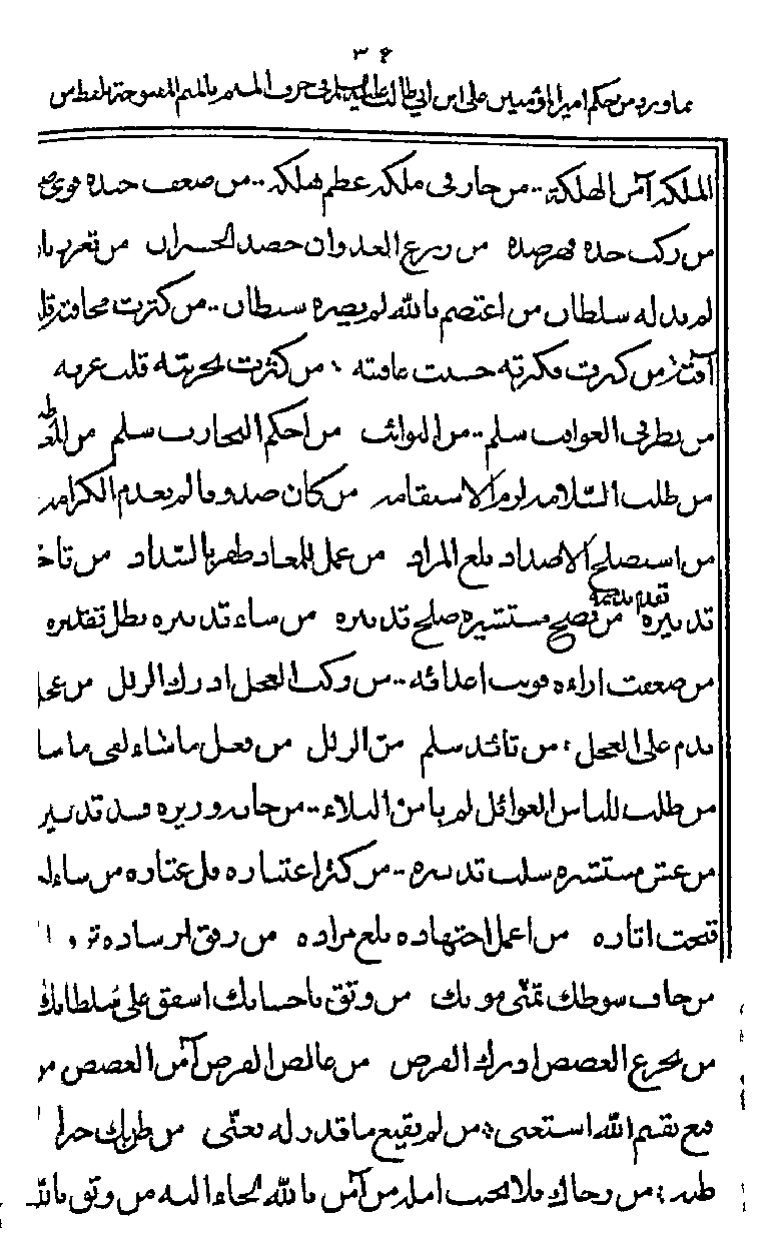 ٣۶
مما ورد من حكم امير المؤمنين على ابن ابى طالب عليه السلام فى حرف الميم بالميم المفتوحة بلفظ من
الهلكة آمن الهلكة من جار فى ملكه عظم هلكه من ضعف جده قوى
من ركب جده قهر ضده من زرع العدوان حصد الخسران من تعزز
لم يذل له سلطان من اعتصم بالله لم يضره شيطان من كثرت مخافته قلت
آفته من كثرت فكرته حسنت عاقبته من كثرت تجربته قلت غرته
من نظر فى العواقب سلم من النوائب من احكم التجارب سلم من
من طلب السلامة لزم الاستقامة من كان صدوقا لم يعدم الكرامة
من استصلح الاضداد بلغ المراد من عمل للمعاد ظفر بالسداد من تاخر
تدبيره تقدم تدميره من نصح مستشيره صلح تدبيره من ساء تدبيره بطل تقديره
من ضعفت اراءه قويت اعدائه من ركب العجل ادرك الزلل من عجل
ندم على العجل من تائد سلم من الزلل من فعل ماشاء لقى ما سا
من طلب للناس الغوائل لم يامن البلاء من خانه وزيره فسد تدبير
من غش مستشيره سلب تدبيره من كثر اعتباره قل عثاره من ساء
قبحت اثاره من اعمل اجتهاده بلغ مراده من رفق لرساده تزو
من خاف سوطك تمنى موتك من وثق باحسانك اشفق على سلطانك
من تجرع الغصص ادرك الفرص من غالص الفرص آمن الغصص من
قنع بقسم الله استغنى من لم يقنع ما قدر له تعنى من
من رجاك فلا تخيب امله من آمن بالله لجاء اليه من وثق بالله